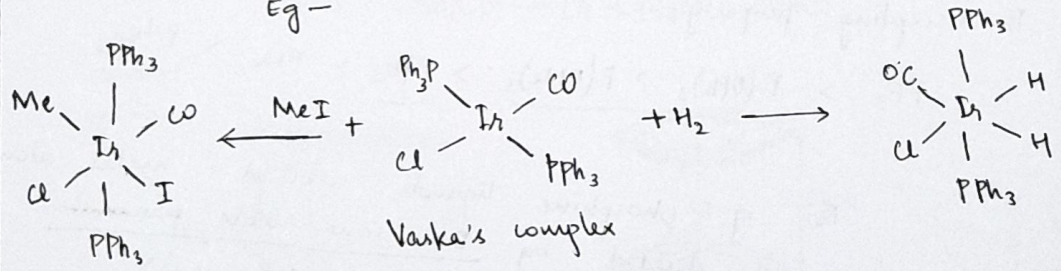 Eg -
PPh3
Me
CO
Ir
Cl
I
PPh3
MeI
+
Ph3P
CO
Ir
Cl
PPh3
Vaska's complex
+ H2
PPh3
OC
H
Ir
Cl
H
PPh3